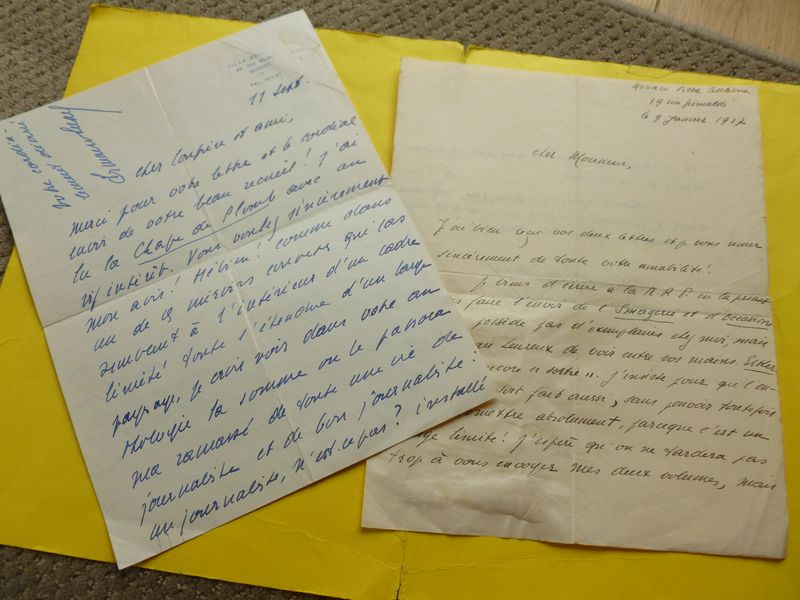 11 Sept.
cher Confrère et ami,
merci pour votre lettre et le cordial
envoi de votre beau recueil! J'ai
lu la Chape de Plomb avec un
vif intérêt. Vous voulez sincèrement
mon avis? Hé bien! comme dans
un de ces miroirs convexes qui
renvoient à l'intérieur d'un cadre
limité toute l'étendue d'un large
paysage, je crois voir dans votre
thologie la somme ou le panora
ma ramassé de toute une vie de
journaliste et de bon journaliste.
un journaliste, n'est-ce pas? installé
votre
Monaco Villa
49 rue
le 9 Janvier 1927
Cher Monsieur,
J'ai bien reçu vos deux lettres et je vous remer
sincèrement de toute votre amabilité.
viens d'écrire à la N.R.F. en la priant
faire l'envoi de l'Imagerie et d'Occasions
possède pas d'exemplaires chez moi, mais
heureux de voir entre vos mains. Esther
encore "sortie". J'insiste pour que l'en
soit fait aussi, sans pouvoir toutefois
mettre absolument, parce que c'est un
limité! J'espère qu'on ne tardera pas
trop à vous envoyer mes deux volumes, mais